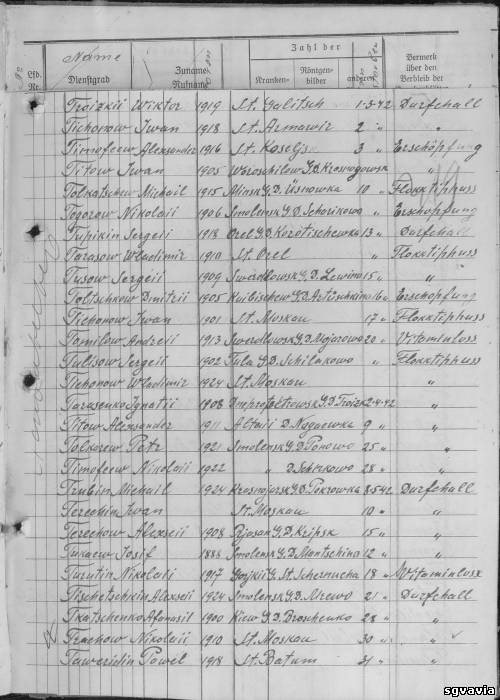 Name
Zahl der
Lfd. Nr. Dienstgrad Zuname Rufname Kranken- Röntgen-bilder anderen Vermerk über den Verbleib der
Troizkii Wiktor 1919 St. Galitsch 1-3-42 Durfchall
Tichonow Iwan 1918 St. Armawir 2 " "
Timofeew Alexsander 1916 St. Koseljsk 3 " Erschöpfung
Titow Iwan 1905 Woroschilow G.D. Krosnogowska "
Tolkatschew Michail 1915 Alinsk G.D. Usnowka 10 " Flokktiphuss
Togorow Nikolaii 1906 Smolensk G.D. Schorikowo " Erschopfung
Tupikin Sergeii 1918 Orel G.D. Korotischewka 13 " Durfchall
Tarasow Wladimir 1910 St. Orel " Floktiphuss
Tusow Sergeii 1909 Swerdlowsk G.D. Lewina 15 " "
Toltschkow Dmitrii 1905 Kuibischew G.D. 16 " Erschopfung
Tichonow Iwan 1901 St. Moskau 17 " Flokktiphuss
Tomilow Andreii 1913 Swerdlowsk G.D. Mojorowo 20 " Vitaminloss
Tulisow Sergeii 1902 Tula G.D. Schilakowo " Flokktiphuss
Tichonow Wladimir 1924 St. Moskau "
Tarasenko Ignatii 1908 Dnepropoltrowsk G.D. Troizk 2-4-42 "
Titow Alexsander 1911 Altaii D. Nogaewka 9 " "
Tolkorew Petr 1921 Smolensk G.D. Ponowo 25 " "
Timofeew Nikolaii 1922 " D. Schirkowo 28 " "
Trubin Michail 1924 Krosnojarsk G.D. Pokrowka 8-5-42 Durfchall
Terechin Iwan St. Moskau 10 " "
Terechow Alexseii 1908 Rjasan G.D. Kripsk 15 " "
Tukaew Josif 1888 Smolensk G.D. Mantschina 12 " "
Turutin Nikolaii 1917 Gorjkii G. St. Schernucha 18 " Witaminloss
Tischetschkin Alexseii 1924 Smolensk G.D. 21 " Durfchall
Tkatschenko Afonasil 1900 Kiew G.D. Droschenko 28 " "
Trachow Nikolaii 1910 St. Moskau 30 " "
Taweridin Powel 1918 St. Batum 31 " "
sgvavia